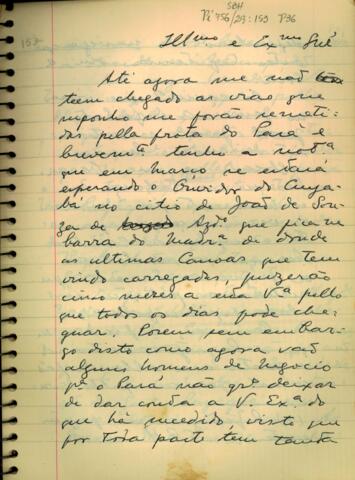 SBH
Pi 756/29:159 P36
152
Ill.mo e Ex.mo Snr
Ati agora me não
teem chegado as vias que
suponho me forão remeti-
das pella frota do Pará e
brevem.te tenho a not.a
que em Março se estará
esperando o Ouvidor do Cuya-
bá no citio de João de Sou-
za de Azd.o que fica na
barra do Madr.a de donde
as ultimas Canoas que tem
vindo carregadas, puzerão
cinco mezes a esta V.a pello
que todos os dias pode che-
guar. Porem sem embar-
go disto como agora vaõ
alguns homens de Negocio
p.a o Pará não qro deixar
de dar conta a V. Ex.a do
que há sucedido, visto que
por toda parte tem